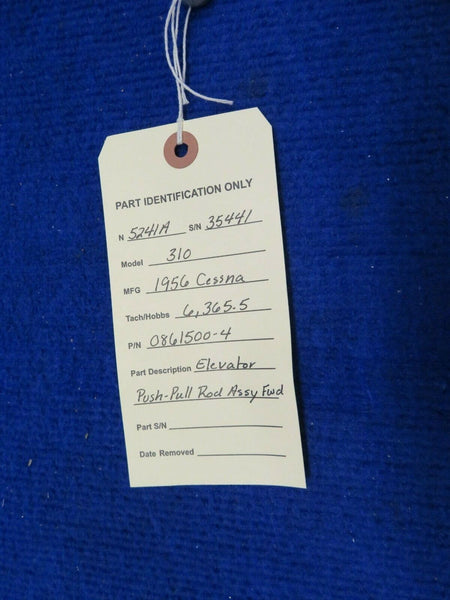 PART IDENTIFICATION ONLY
N 5241A S/N 35441
Model 310
MFG 1956 Cessna
Tach/Hobbs 6,365.5
P/N 0861500-4
Part Description Elevator
Push-Pull Rod Assy Fwd
Part S/N
Date Removed